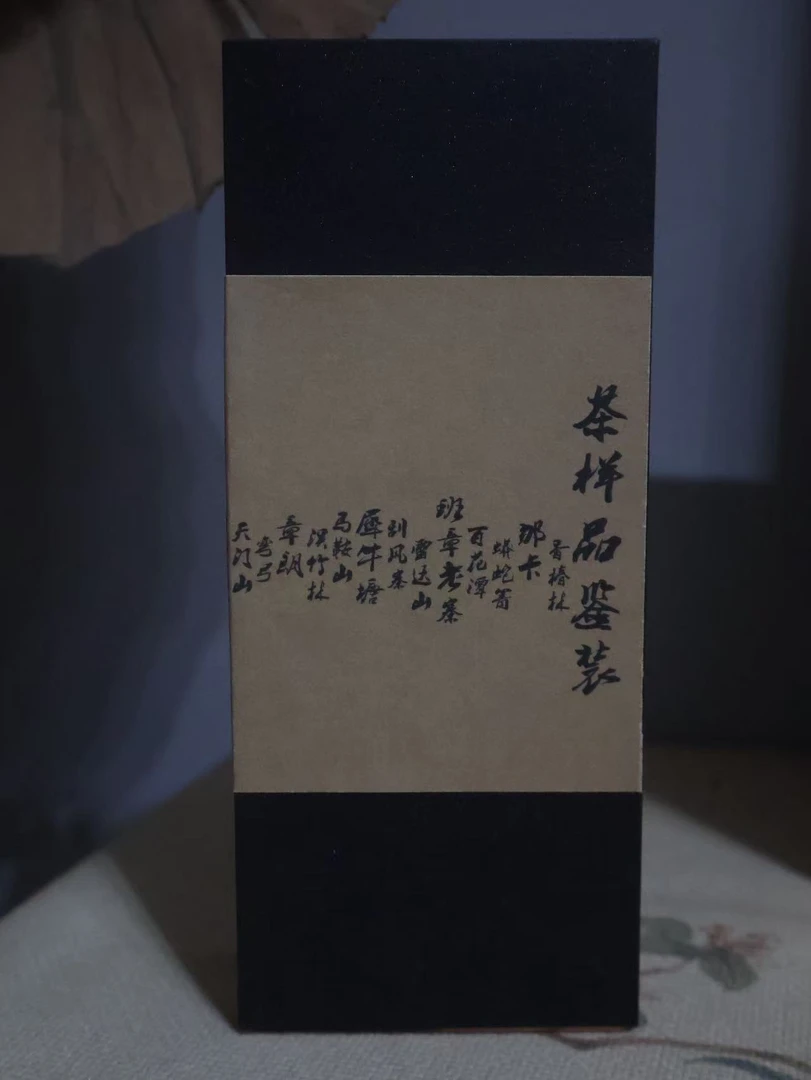 茶样品鉴装
香椿林
那卡
蟒蛇箐
百花潭
班章老寨
雷达山
刮风寨
犀牛塘
马鞍山
滇竹林
章朗
弯弓
天门山